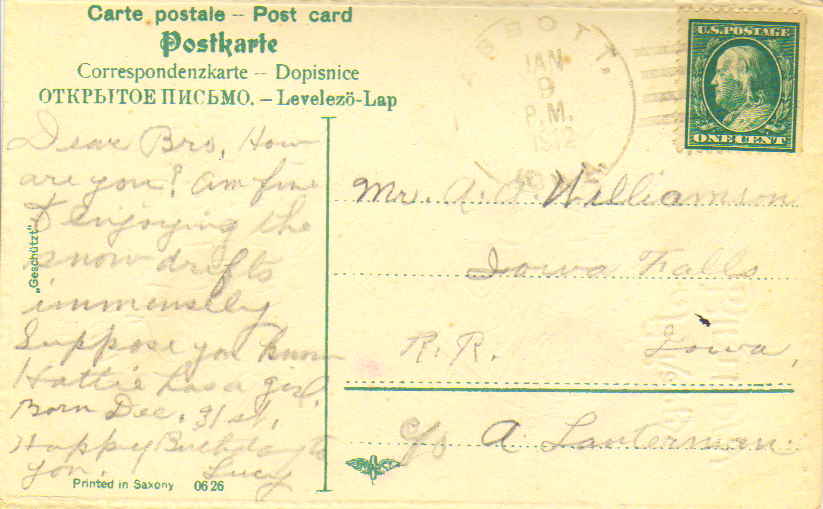 Carte postale – Post card
Postkarte
Correspondenzkarte – Dopisnice
ОТКРЫТОЕ ПИСЬМО. – Levelező-Lap
ABBOTT,
JAN
9
P.M.
1912
IOWA.
U.S. POSTAGE
ONE CENT
Dear Bro, How
are you? Am fine
& enjoying the
snow drifts
immensely
Suppose you know
Hattie has a girl.
Born Dec. 31st,
Happy Birthday to
you. Lucy
„Geschützt"
Printed in Saxony 0626
Mr. A. Williamson
Iowa Falls
R. R. Iowa,
c/o A Lauterman.